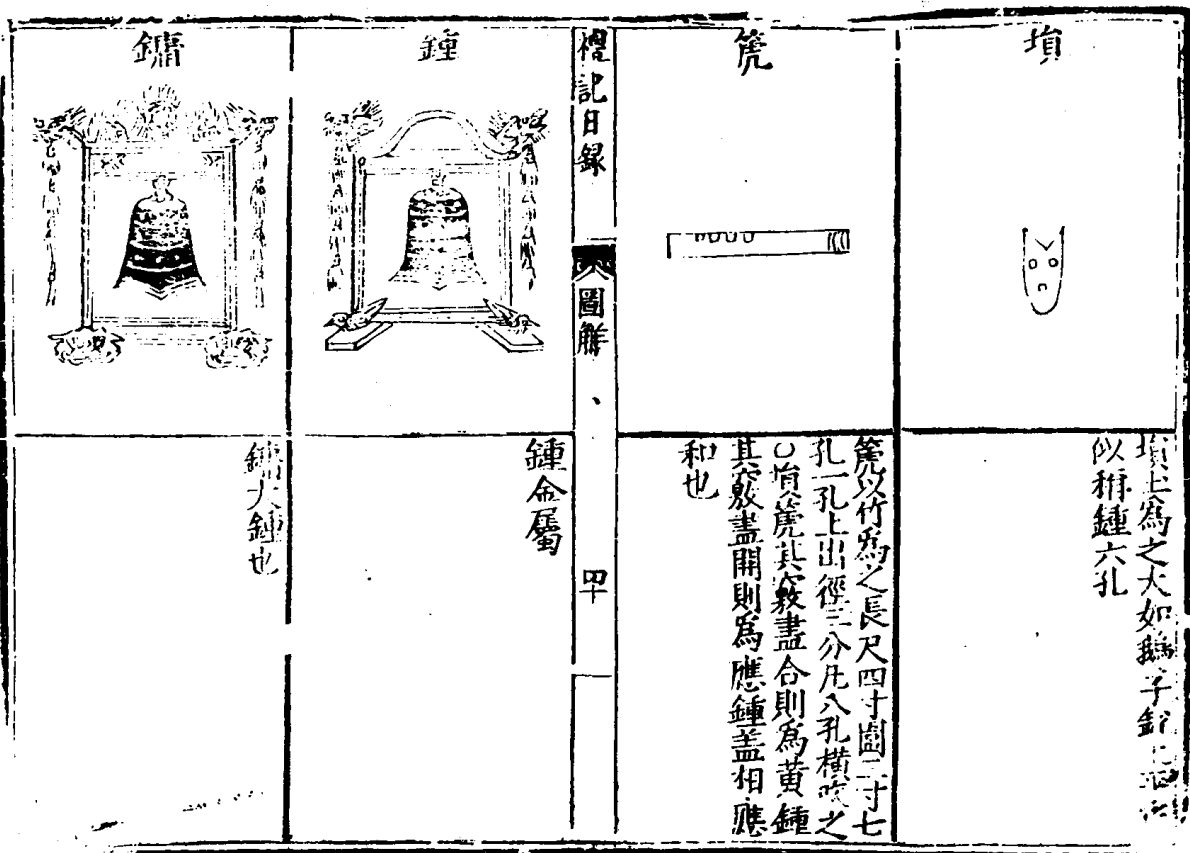 塤
塤土爲之大如鵝子
似稱鍾六孔
篪
篪以竹爲之長尺四寸圍三寸七
孔一孔上出徑三分凡八孔橫吹之
〇塤篪其竅盡合則爲黃鍾
其竅盡開則爲應鍾盖相應
和也
禮記日録
圖解
四十
鍾
鍾金屬
鏞
鏞大鍾也